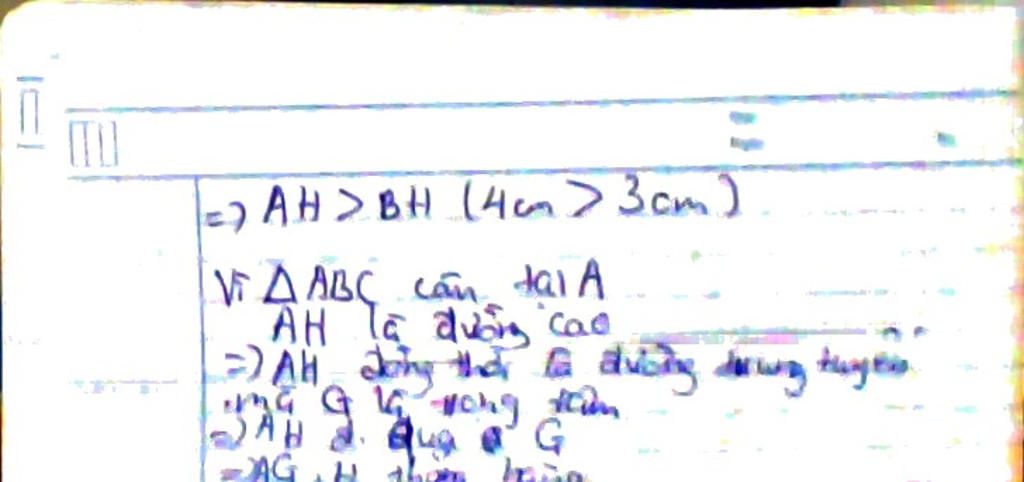 => AH > BH (4cm > 3cm)
Vì △ABC cân tại A
AH là đường cao
=> AH đồng thời là đường trung tuyến
mà G là trọng tâm
=> AH đi qua G